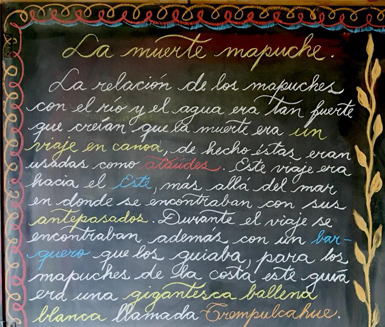 La muerte mapuche.
La relación de los mapuches
con el río y el agua era tan fuerte
que creían que la muerte era un
viaje en canoa, de hecho éstas eran
usadas como ataúdes. Este viaje era
hacia el Este, mas allá del mar
en donde se encontraban con sus
antepasados. Durante el viaje se
encontraban además con un bar-
quero que los guiaba, para los
mapuches de la costa este guía
era una gigantesca ballena
blanca llamada Trempulcahue.